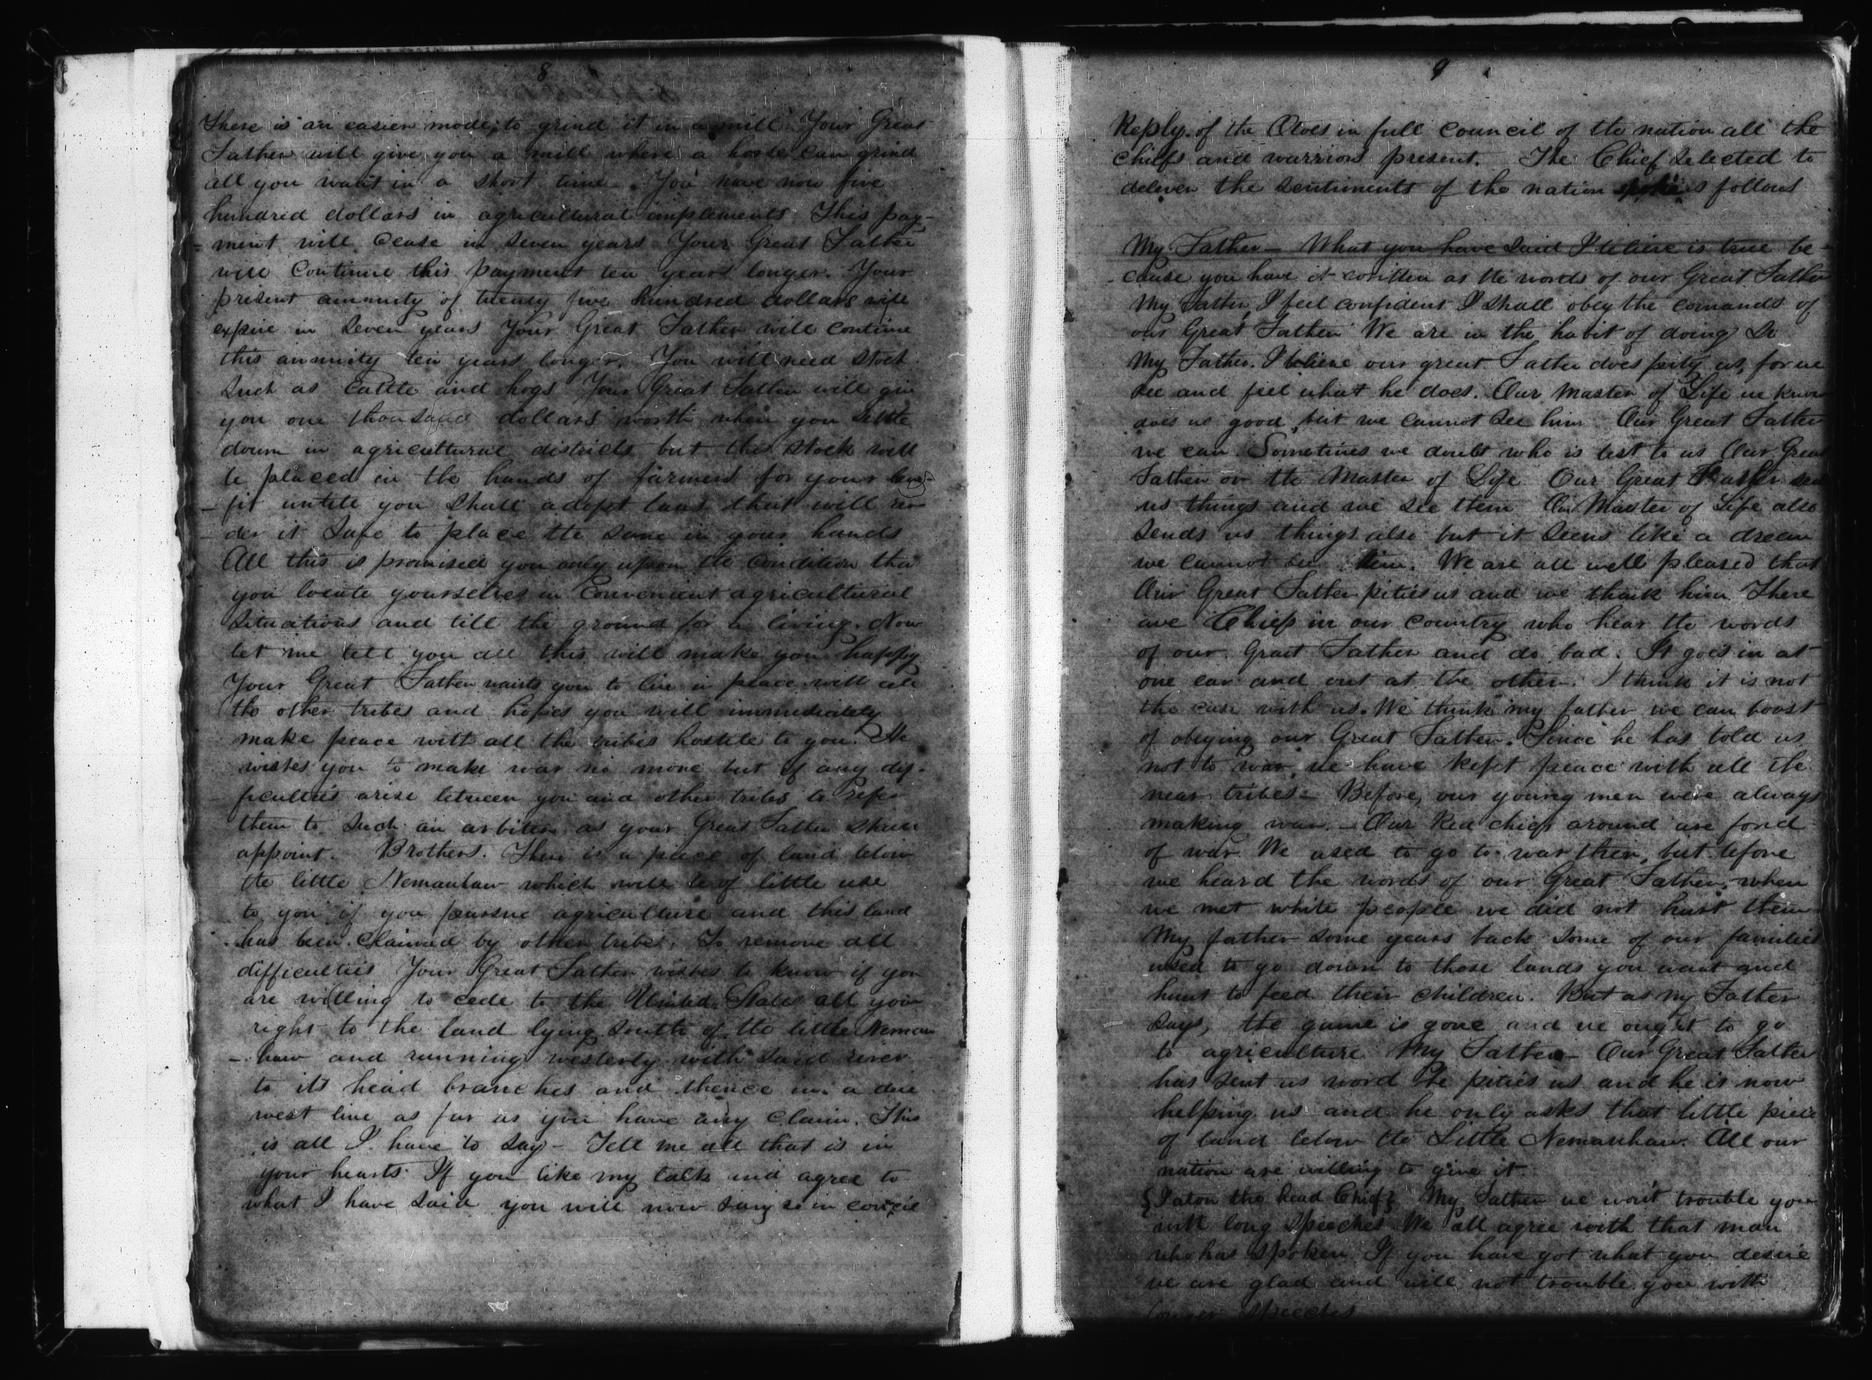 8
There is an easier mode; to grind it in a mill. Your Great
Father will give you a mill where a horse can grind
all you want in a short time. You have now five
hundred dollars in agricultural implements This pay-
ment will cease in seven years Your Great Father
will continue this payment ten years longer. Your
present annuity of twenty five hundred dollars will
expire in seven years Your Great Father will continue
this annuity ten years longer. You will need stock
such as Cattle and hogs Your Great Father will give
you one thousand dollars worth when you settle
down in agricultural districts but this stock will
be placed in the hands of farmers for your bene-
fit untile you shall adopt laws that will ren
der it safe to place the same in your hands
All this is promised you only upon the condition that
you locate yourselves in convenient agricultural
situations and till the ground for a living. Now
let me tell you all this will make you happy
Your Great Father wants you to live in peace with all
the other tribes and hopes you will immediately
make peace with all the tribes hostile to you. He
wishes you to make war no more but if any dif-
ficulties arise between you and other tribes to refer
them to such an arbiter as your Great Father shall
appoint. Brothers. There is a piece of land below
the little Nemauhaw which will be of little use
to you if you pursue agriculture and this land
has been claimed by other tribes. To remove all
difficulties Your Great Father wishes to know if you
are willing to cede to the United States all your
right to the land lying South of the little Nemau
haw and running westerly with said river
to its head branches and thence in a due
west line as far as you have any claim. This
is all I have to say - Tell me all that is in
your hearts If you like my talk and agree to
what I have said you will now say so in council
9
Reply of the Otoes in full council of the nation all the
chiefs and warriors present. The Chief selected to
deliver the sentiments of the nation spoke as follows
My Father - What you have said I believe is true be-
cause you have it written as the words of our Great Father
My Father, I feel confident I shall obey the comands of
our Great Father We are in the habit of doing so
My Father. I believe our great Father does pity us, for we
see and feel what he does. Our Master of Life we know
does us good, but we cannot see him Our Great Father
we can. Sometimes we doubt who is best to us Our Great
Father or the Master of Life Our Great Father sends
us things and we see them Our Master of Life also
sends us things also but it seems like a dream
we cannot see him. We are all well pleased that
Our Great Father pities us and we thank him There
are Chiefs in our country who hear the words
of our Great Father and do bad. It goes in at
one ear and out at the other. I think it is not
the case with us. We think my father we can boast
of obeying our Great Father. Since he has told us
not to war, we have kept peace with all the
near tribes - Before, our young men were always
making war. - Our Red chiefs around are fond
of war We used to go to war then, but before
we heard the words of our Great Father, when
we met white people we did not hurt them
My father some years back some of our families
used to go down to those lands you want and
hunt to feed their children. But as my Father
says, the game is gone and we ought to go
to agriculture My Father - Our Great Father
has sent us word he pities us and he is now
helping us and he only asks that little piece
of land below the Little Nemauhaw. All our
nation are willing to give it
{Iaton the head Chief} My Father we won't trouble you
with long speeches We all agree with that man
who has spoken If you have got what you desire
we are glad and will not trouble you with
longer speeches